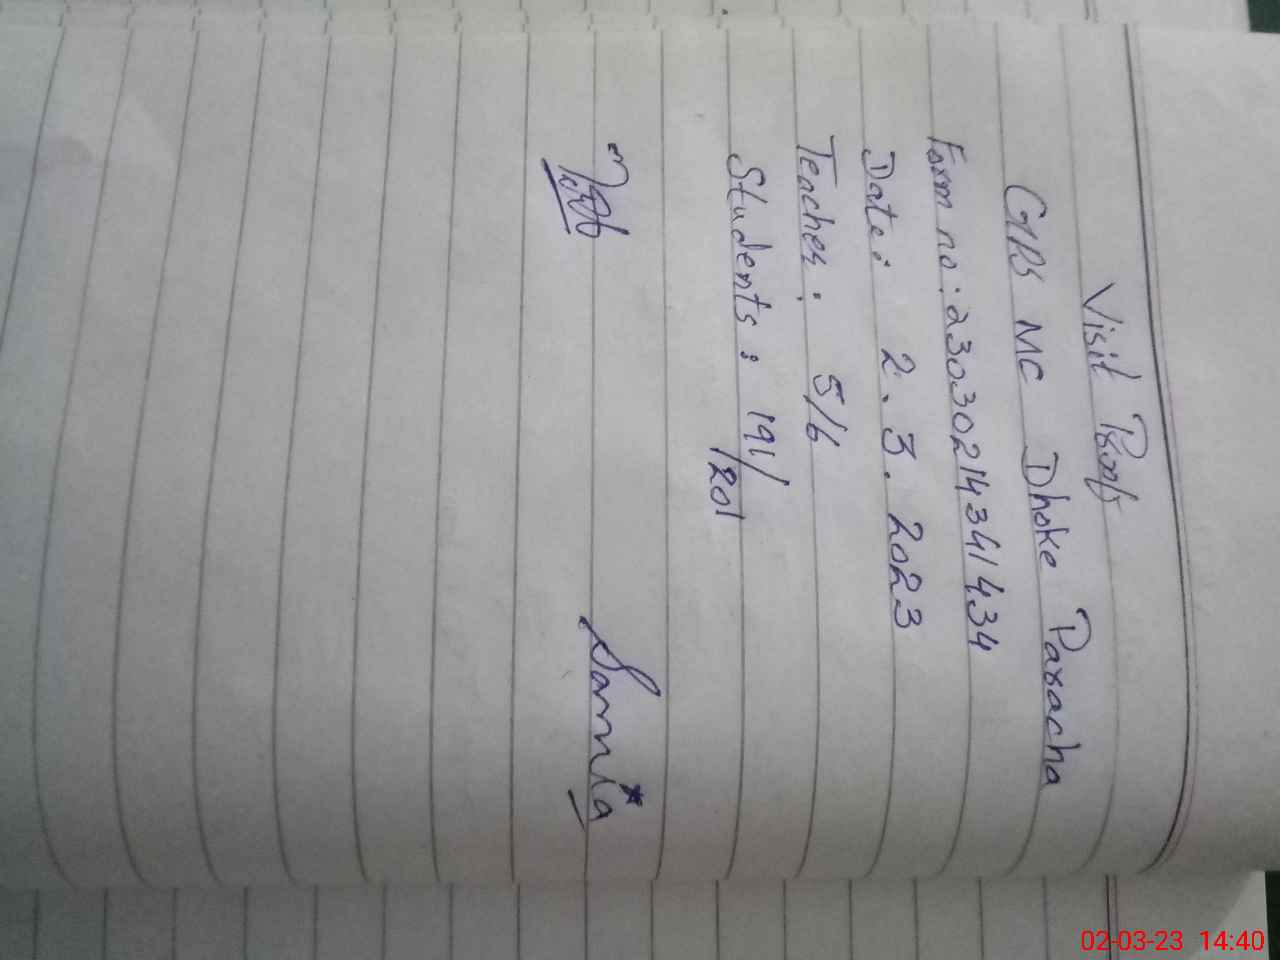 Visit Proof
GPS MC Dhoke Paracha
Form no: 23030214341434
Date: 2.3.2023
Teaches: 5/6
Students: 191/201
Samia
02-03-23 14:40